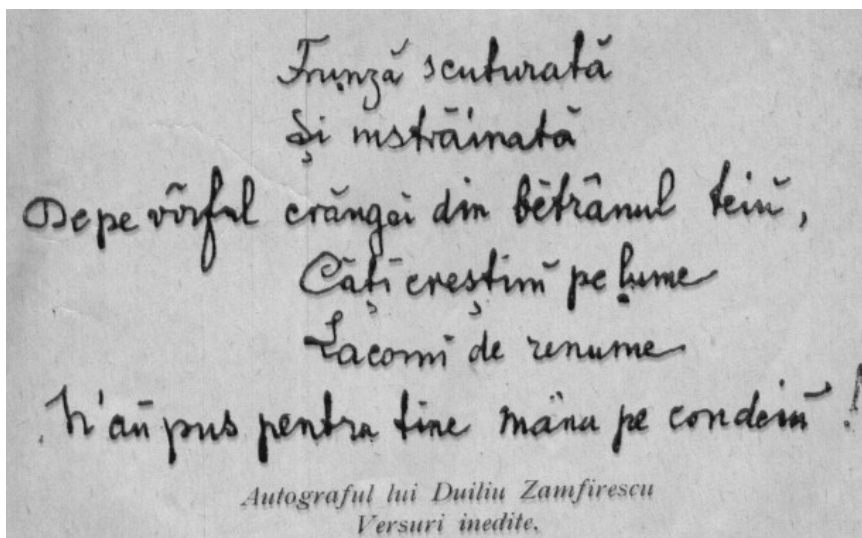 Frunză scuturată
Și instrăinată
De pe vârful crăngei din bĕtrânul teiŭ,
Câți creștinĭ pe lume
Lacomĭ de renume
N'aŭ pus pentru tine mâna pe condeiŭ!
Autograful lui Duiliu Zamfirescu
Versuri inedite.